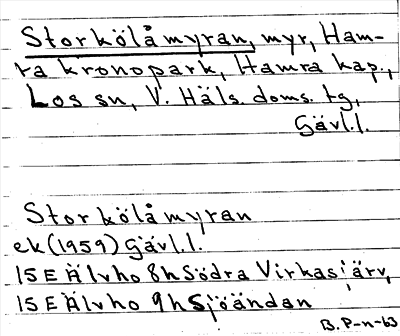 Storkölåmyran, myr, Ham-
ra kronopark, Hamra kap.,
Los sn, V. Häls. doms. tg,
Gävl.l.
Storkölåmyran
ek (1959) Gävl.l.
15 E Älvho 8h Södra Virkasjärv,
15 E Älvho 9h Sjöändan
B. P-n-63